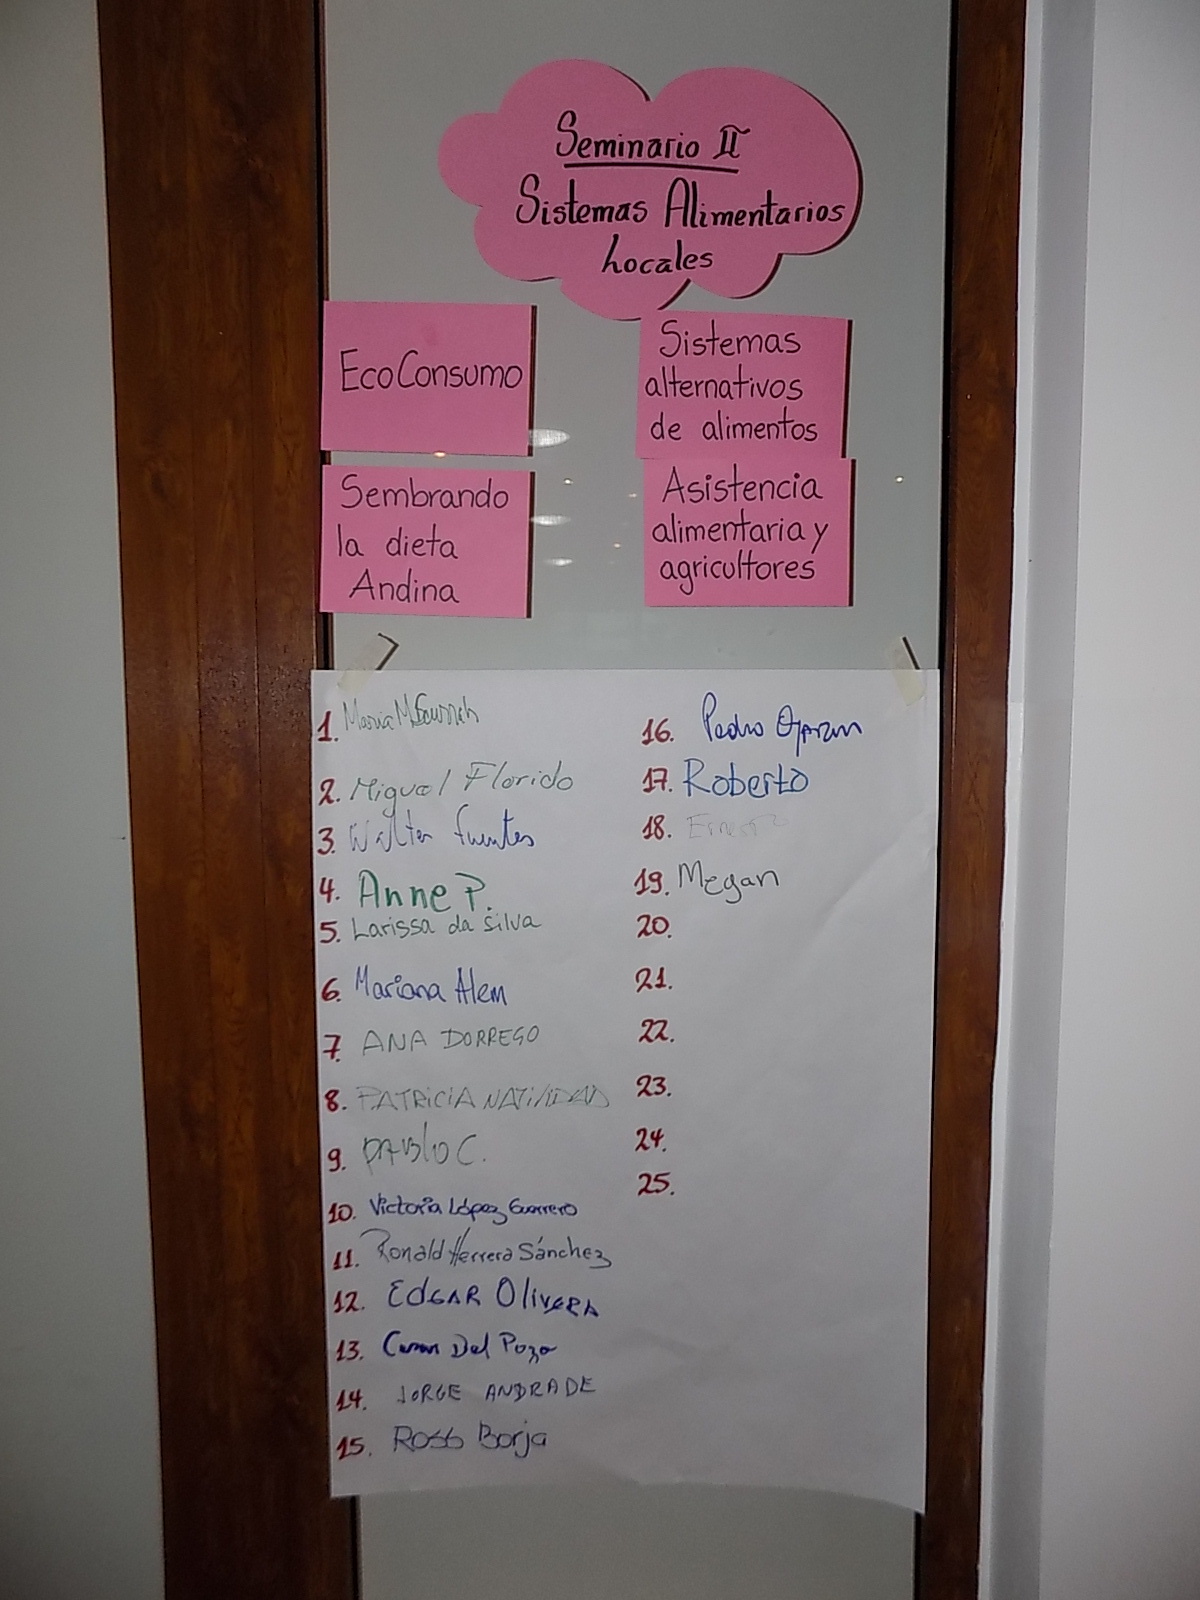 Seminario II
Sistemas Alimentarios
Locales
EcoConsumo
Sistemas
alternativos
de alimentos
Sembrando
la dieta
Andina
Asistencia
alimentaria y
agricultores
1. Maria M.
2. Miguel Florido
3. Walter Fuentes
4. Anne P.
5. Larissa da Silva
6. Mariana Alem
7. ANA DORREGO
8. PATRICIA NATIVIDAD
9. PABLO C.
10. Victoria López Guerrero
11. Ronald Herrera Sánchez
12. EDGAR OliVERA
13. Del Pozo
14. JORGE ANDRADE
15. Ross Borja
16. Pedro
17. Roberto
18. Ernesto
19. Megan
20.
21.
22.
23.
24.
25.